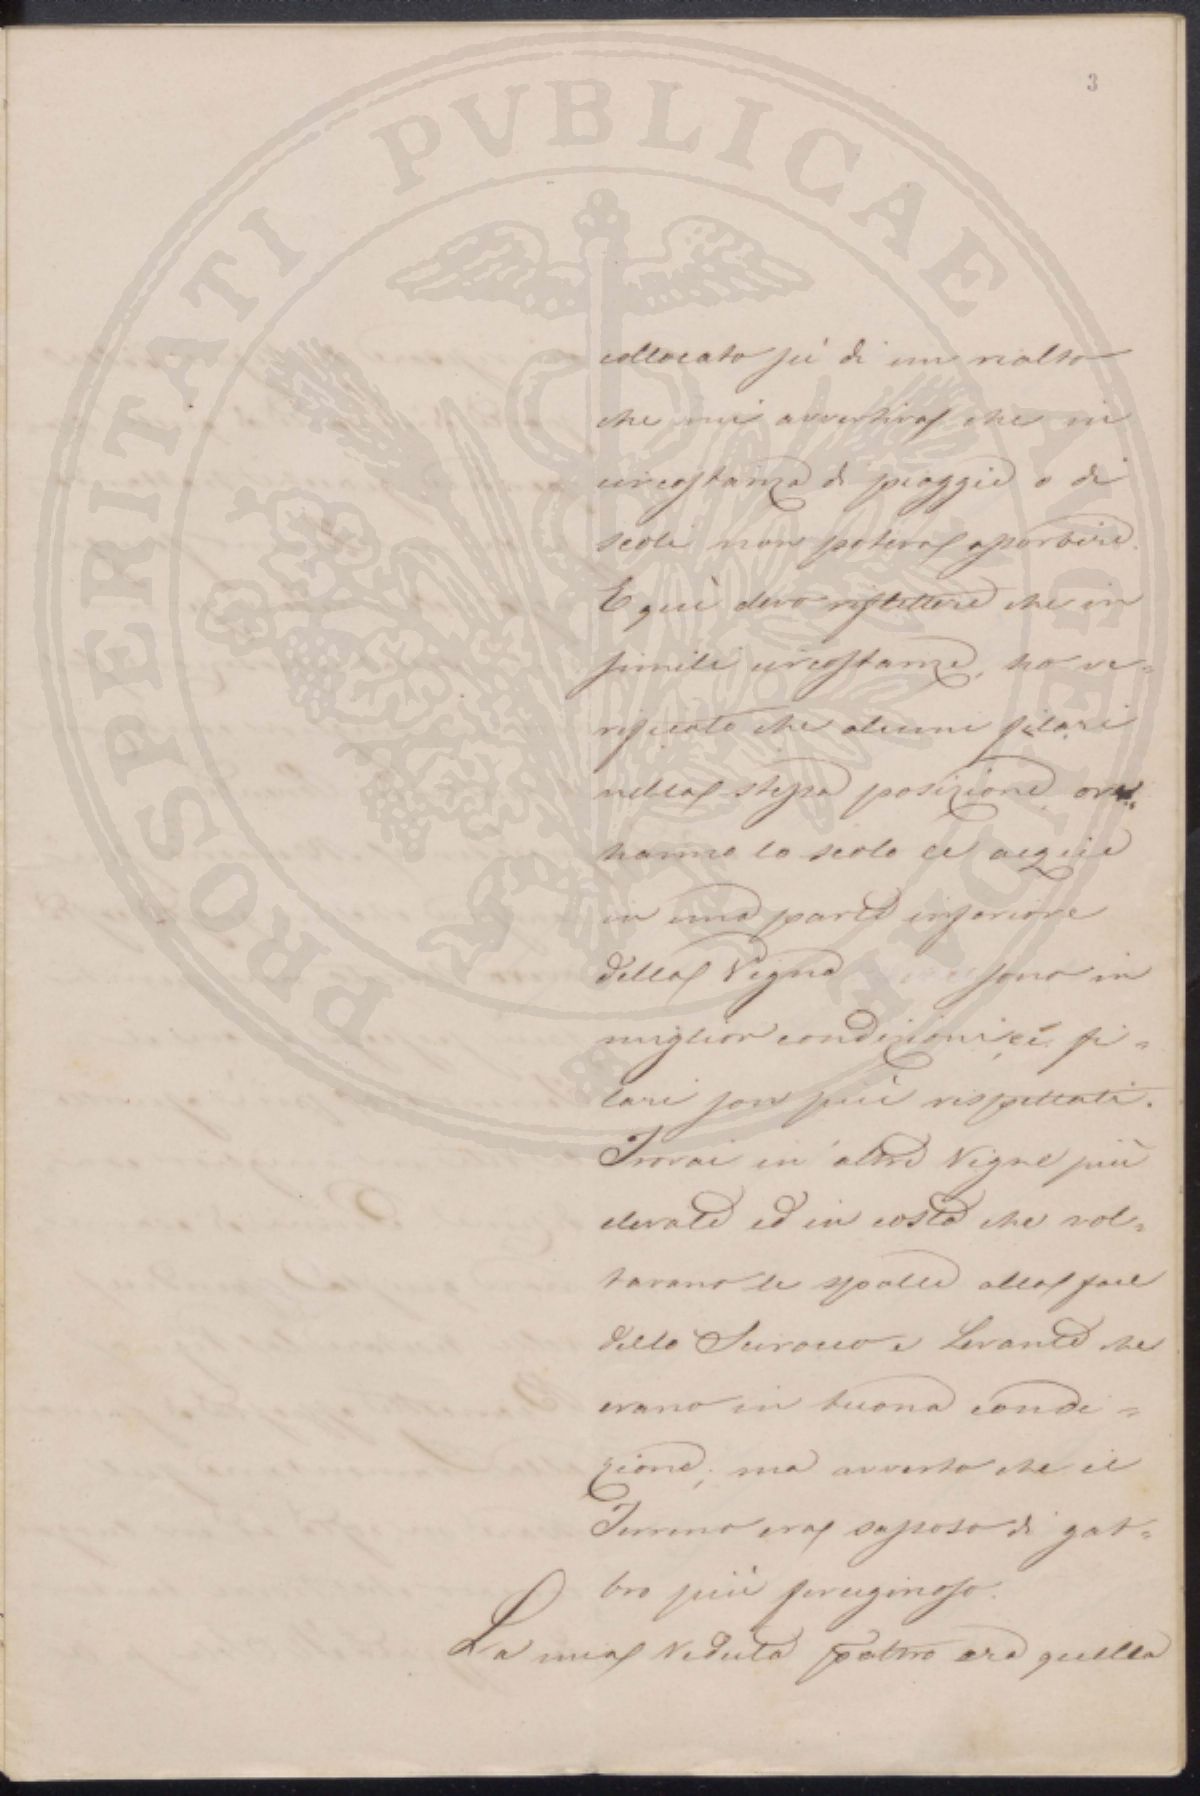 3
PROSPERITATI PVBLICAE AVGENDAE
collocato sù di un rialto
che mi avvertiva che in
circostanza di pioggie o di
scoli non poteva assorbire.
E quì devo riflettere che in
simili circostanze, ho ve=
rificato che alcuni filari
nella stessa posizione, ove
hanno lo scolo le acque
in una parte inferiore
della Vigna sono in
miglior condizioni, e i fi=
lari son più rispettati.
Trovai in altre Vigne più
elevate ed in costa che vol=
tavano le spalle alla face
dello Scirocco e Levante che
erano in buona condi=
zione; ma avverto che il
Terreno era sassoso di gab=
bro più feruginoso.
La mia Veduta peltro era quella